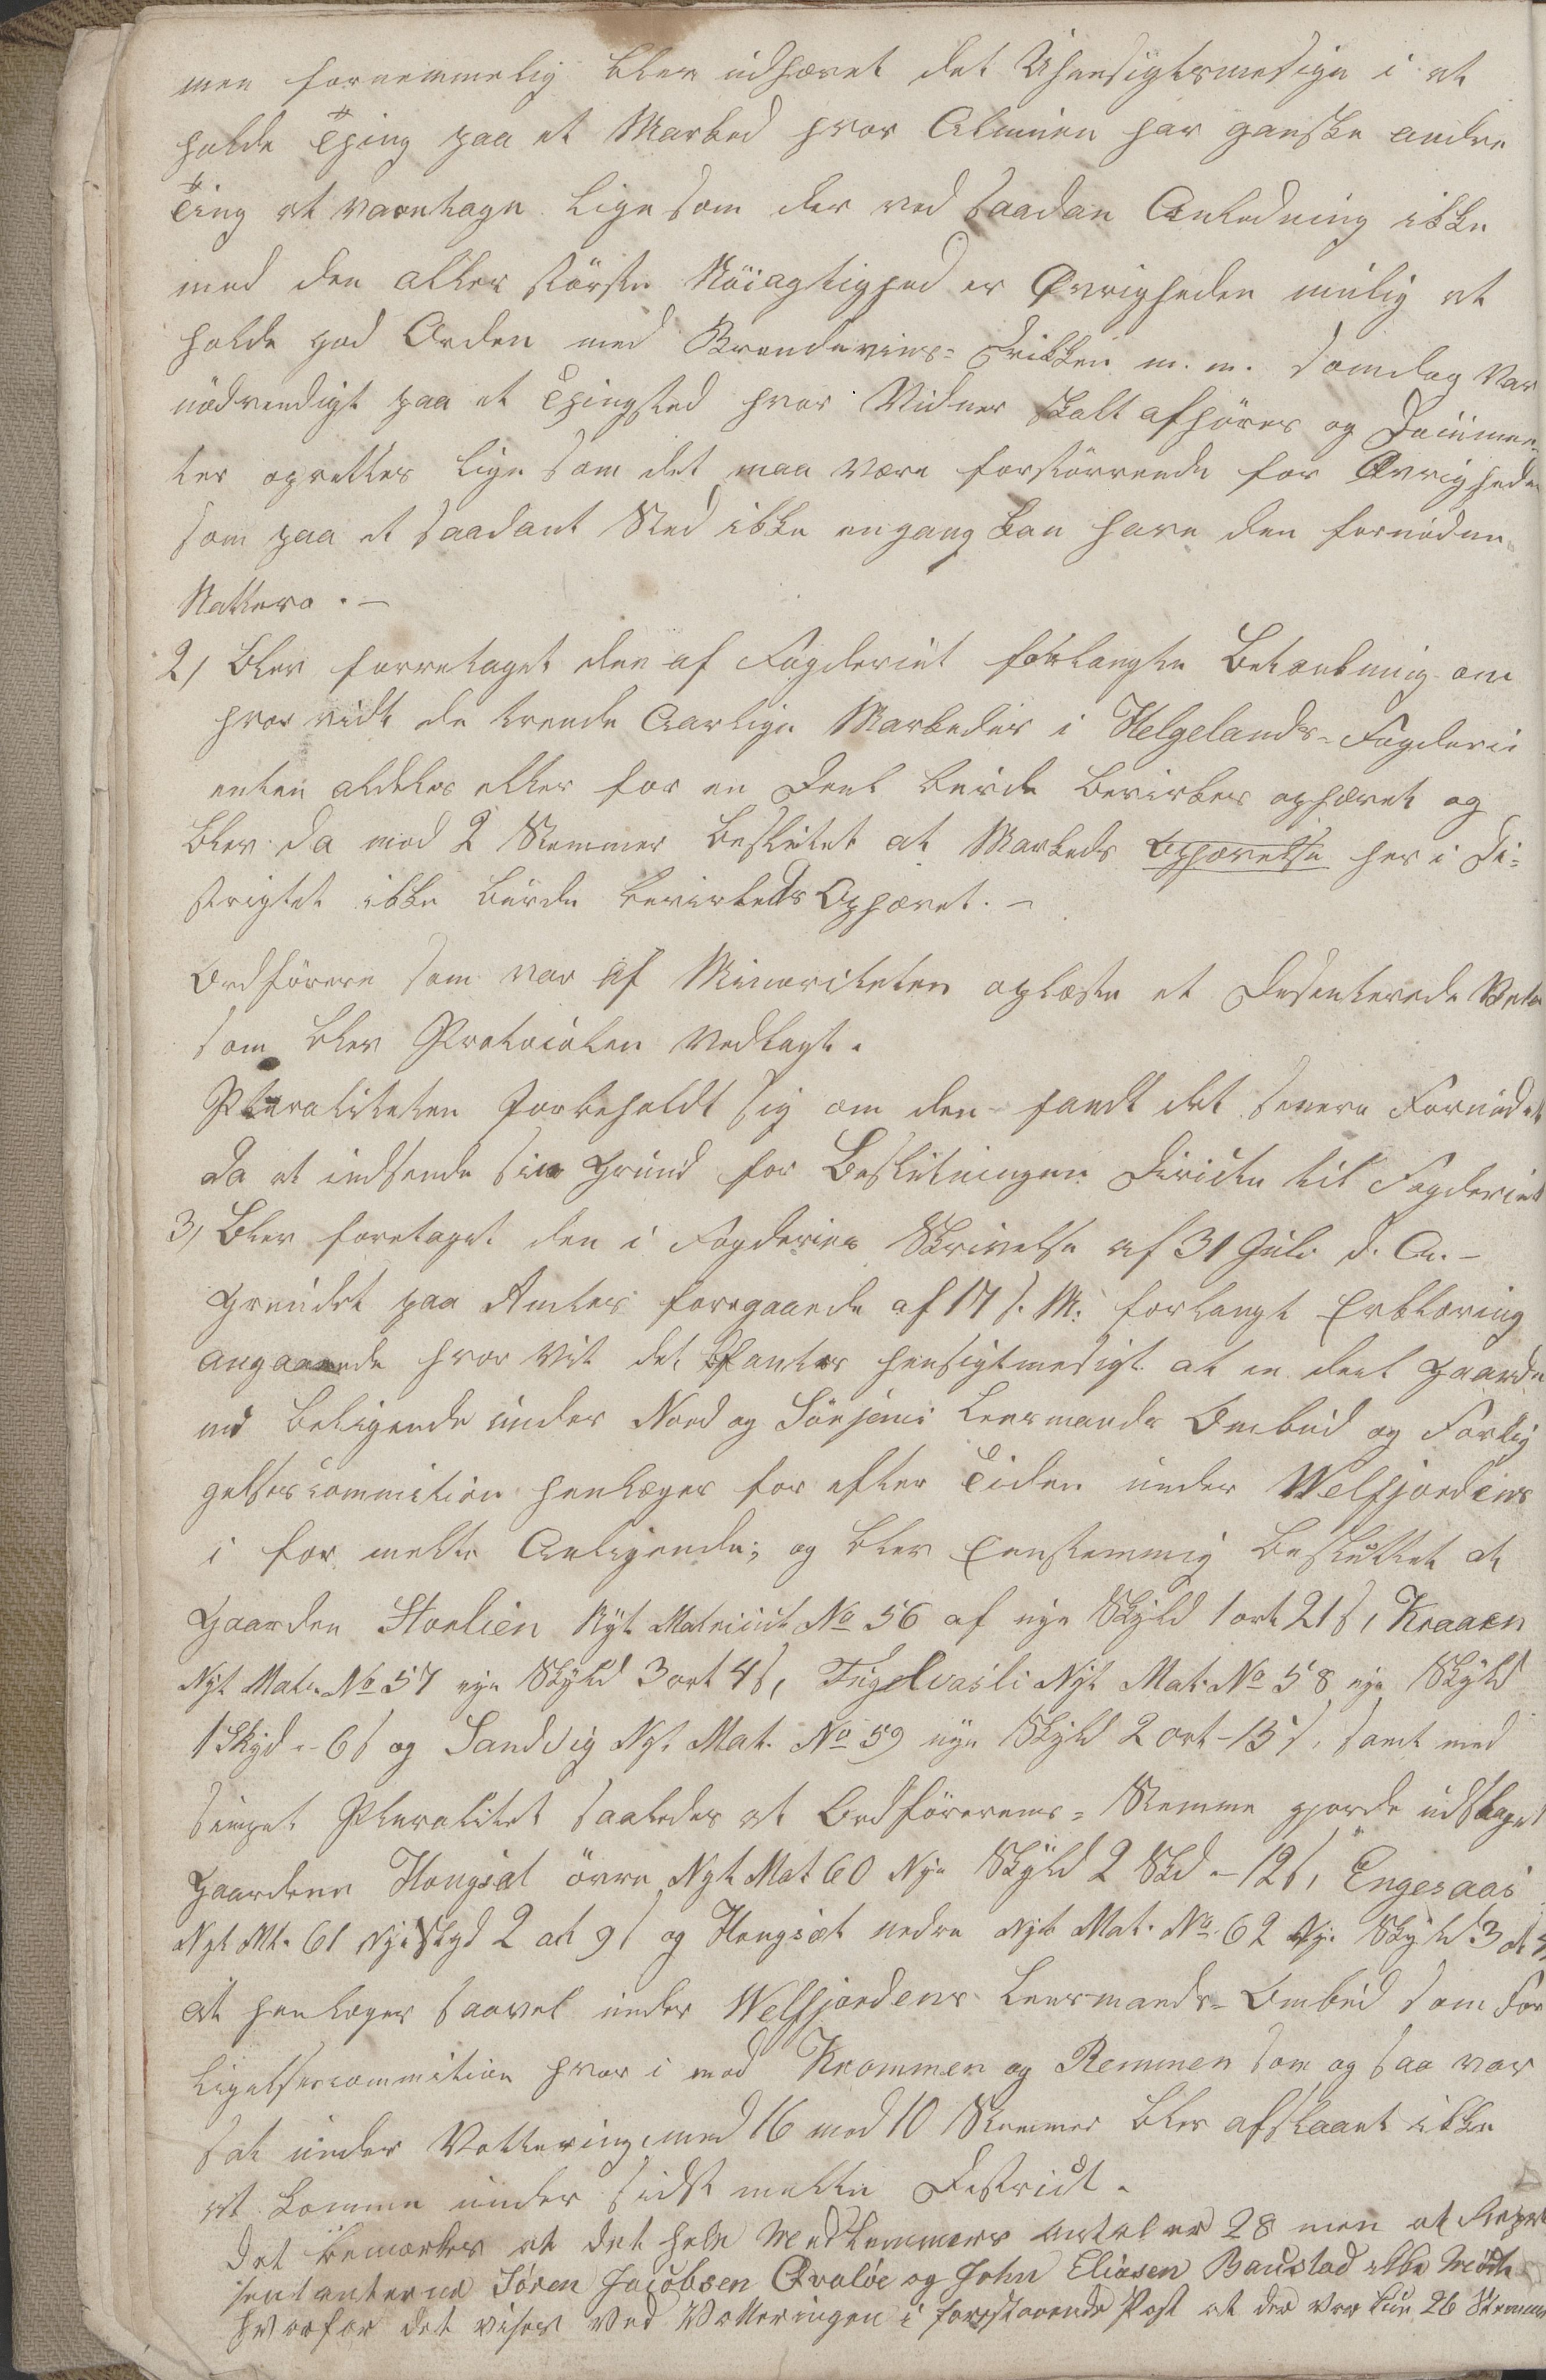 men fornemmelig blev udhævet det Uhensigtsmesige i at
holde Thing paa et Marked hvor Almuen har ganske andre
Ting at varetage lige som der ved saadan Anledning ikke
med den aller störste Nöiagtighed er Øvrigheden mulig at
holde god Orden med Brendevins-Drikken m. m. somdog var
nödvendigt paa et Thingsted hvor Vidner skalt afhöres og Documen-
ter oprettes lige som det maa være forstörrende for Øvrigheden
som paa et saadant Sted ikke engang kan have den fornödne
Nattero. -
2, blev forretaget den af Fogderiet forlangte Betænkning om
hvor vidt de trende Aarlige Markeder i Helgelands-Fogderi
enten aldeles eller for en Deel burde bevirkes ophævet og
blev da med 2 Stemmer besluttet at Markeds Ophævelse her i Di-
strigtet ikke burde bevirkeds Ophævet. -
Ordförere som var af Minoriteten oplæste et Desenterede Vota
som blev Protocolen vedlagt.
Pluraliteten forbeholdt sig om den fandt det senere Fornödet
da at indsende sin Grund for Beslutningen Directe til Fogderiet
3, Blev foretaget den i Fogderiets Skrivelse af 31 Juli d. A. -
grundet paa Amtes foregaaende af 17 s. M. forlangt Erklæring
angaaende hvor vit det Pantes hensigtmesigt at en deel Gaarde
nu beligende under Nord og Sör Lensmands Ombud og Forlig
gelsescommition henlæges for efter Tiden under Welfjordens
i for melte Anligende; og blev Eenstemmig besluttet at
Gaarden Storlien Nyt Matricul No 56 af nye Skyld 1 ort 21 s, Kraaen
Nyt Mat. No 57 nye Skyld 3 ort 4 s, Fugelvasli Nyt Mat. No 58 nye Skyld
1 Skyd - 6 s og Sandvig Nyt Mat. No 59 nye Skyld 2 ort - 15 s, samt med
simpel Pluralitet saaledes at Ordförerens-Stemme gjorde udslaget
Gaardene Hongsæt övre Nyt Mat 60 Nye Skyld 2 Skd - 12 s, Engesaas
Nyt Mt. 61 Nye Skyd 2 ort 9 s og Hongsæt nedre Nyt Mat. No. 62 Ny. Skyld 3
at henlæges saavel under Welfjordens Lensmands-Ombud som For
ligelsescommition hvor i mod Krommen og Remmen som og saa var
sat under Vottering, med 16 mod 10 Stemmer blev afslaaet ikke
at komme under sidst melte District.
Det bemærkes at det hele Medlemmers antal er 28 men at Repre
sentanterne Sören Jacobsen Qvalöe og John Eliasen Baustad ikke Mödte
hvorfor det vises ved Votteringen i forestaaende Post at der var kun 26 Stemmer